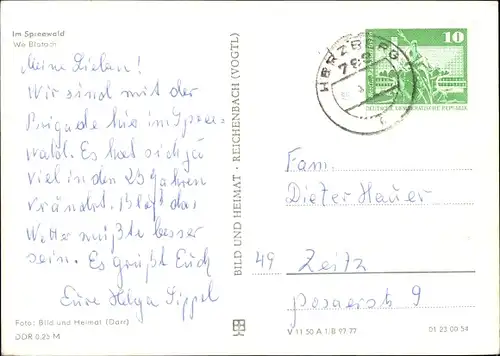 Im Spreewald
We Blotach
Meine Lieben!
Wir sind mit der
Brigade hier im Spree-
wald. Es hat sich ja
viel in den 25 Jahren
verändert. Bloß das
Wetter müßte besser
sein. Es grüßt Euch
Eure Helga Sippel
Foto: Bild und Heimat (Darr)
DDR 0,25 M
BILD UND HEIMAT · REICHENBACH (VOGTL)
HERZBERG
10
DEUTSCHE DEMOKRATISCHE REPUBLIK
Fam.
Dieter Hauer
49 Zeitz
Posaerstr 9
V 11 50 A 1/B 97 77 01 23 00 54